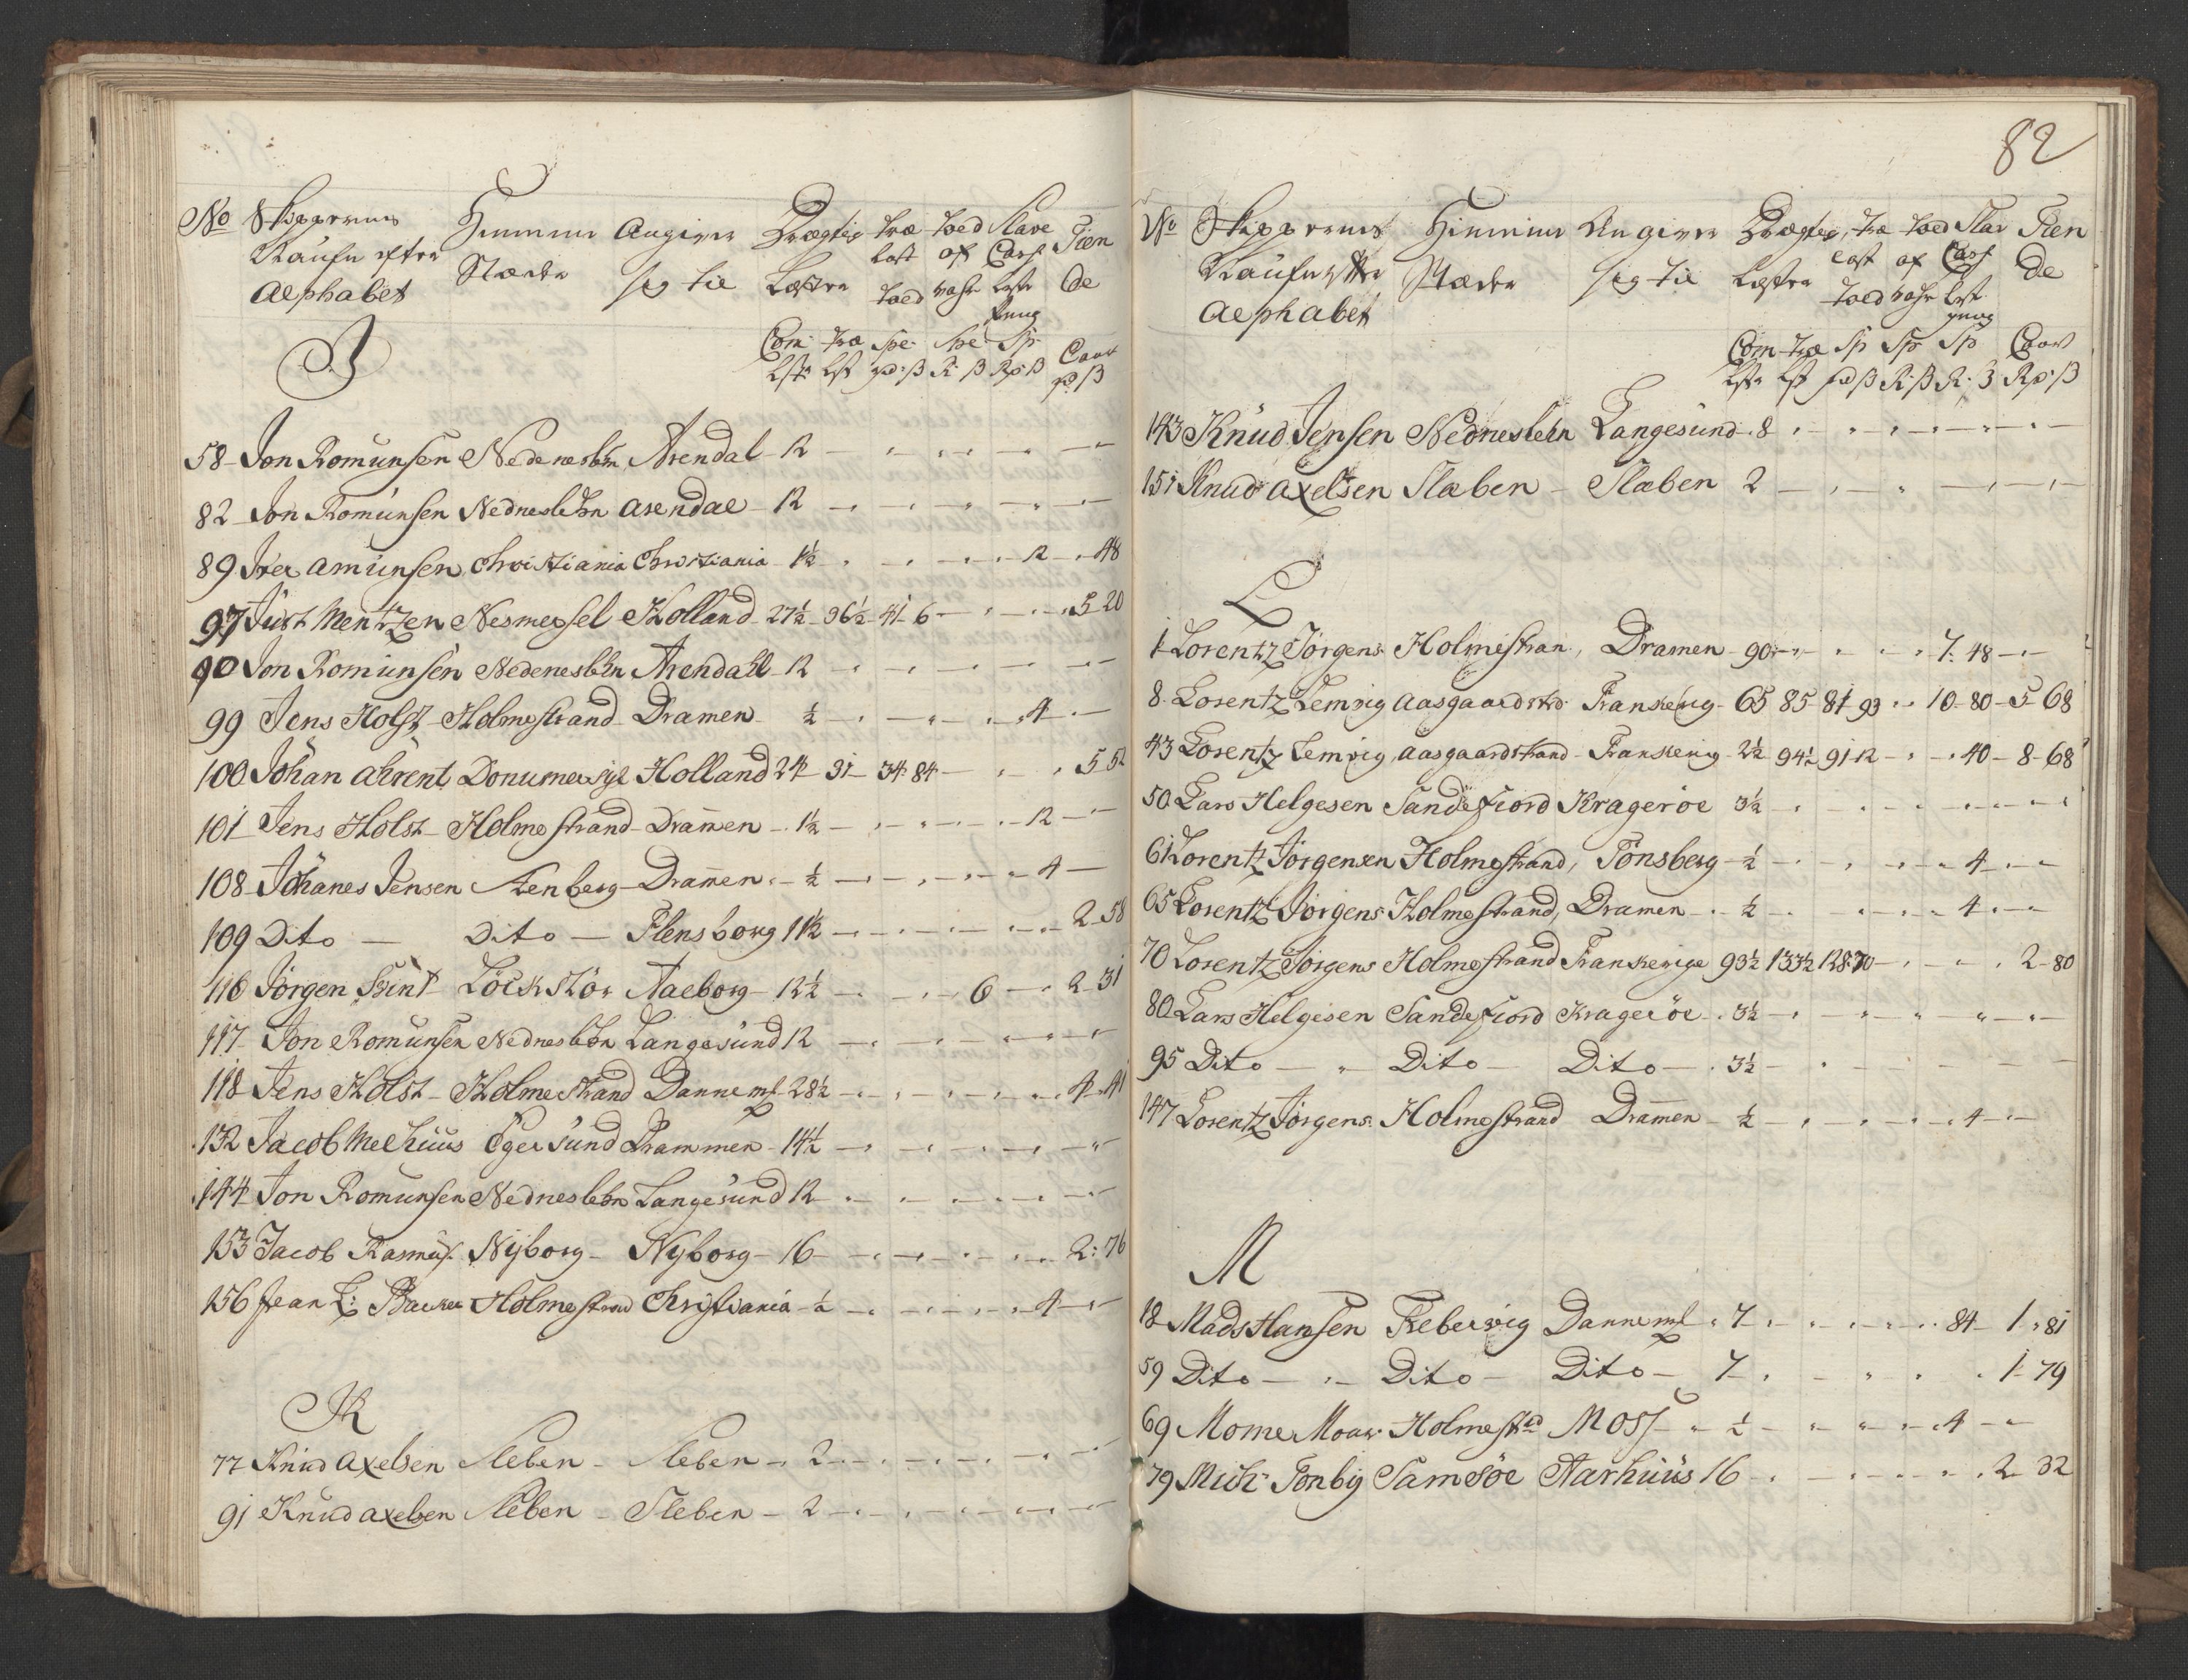 No Skippernes Hiemme Angiver Drægtig Træ Toed Slave Tien
Naufn efter Stæder sig til Læster Last af Cass De
Alphabet Toed Vahr Læste
Penng
Com Træ Spe Spe Sp Cour
Lst Lst rd ß R ß Rd ß rd ß
J
58 Jon Romunsen Nedeneslehn Arendal 12
82 Jon Romunsen Nedneslehn Arendal 12
89 Iver Amunsen Christiania Christiania 1½ 12 48
97 Just Mentzen Nesmersel Holland 27½ 36½ 41 6 5 20
90 Jon Romunsen Nedeneslehn Arendahl 12
99 Jens Holst Holmestrand Dramen ½ 4
100 Johan Ahrent Donumersyl Holland 24 31 34 84 5 52
101 Jens Holst Holmestrand Dramen 1½ 12
108 Johanes Jensen Stenberg Dramen ½ 4
109 Dito Dito Flensborg 11½ 2 58
116 Jörgen Svint Löckstör Aalborg 12½ 6 2 31
117 Jon Romunsen Nedneslehn Langesund 12
118 Jens Holst Holmestrand Dannemk 28½ 4 41
132 Jacob Melhuus Egersund Drammen 14½
144 Jon Romunsen Nedneslehn Langesund 12
153 Jacob Rasmus. Nyborg Nyborg 16 2: 76
156 Jean L: Backer Holmestrand Christiania ½ 4
K
77 Knud Axelsen Sleben Sleben 2
91 Knud Axelsen Sleben Sleben 2
82
No Skippernes Hiemme Angiver Drægtig Træ Toed Slav Tien
Naufn efter Stæder sig til Læster Last af Cass De
Alphabet Toed Vahr Lest
penng
Com Træ Sp Sp Sp Cour
Lst Lst rd ß R ß R ß Rd ß
143 Knud Jensen Nedneslehn Langesund 8
151 Knud Axelsen Slæben Slæben 2
L
1 Lorentz Jörgens Holmestran Dramen 90 7: 48
8 Lorentz Lemvig Aasgaardstrd Frankerig 65 85 81 93 10 80 5 68
43 Lorentz Lemvig Aasgaardstrand Frankerig 2½ 94½ 91 12 40 8 68
50 Lars Helgesen Sandefiord Krageröe 3½
61 Lorentz Jörgensen Holmestrand, Tönsberg ½ 4
65 Lorentz Jörgens Holmestrand, Dramen ½ 4
70 Lorentz Jörgens Holmestrand Frankerige 93½ 133½ 128 70 2 80
80 Lars Helgesen Sandefiord Krageröe 3½
95 Dito Dito Dito 3½
147 Lorentz Jörgens Holmestrand Dramen ½ 4
M
18 Mads Hansen Tiebervig Dannemk 7 84 1 81
59 Dito Dito Dito 7 1 79
69 Mome Moar Holmestrd Moss ½ 4
79 Mich Tonbÿ Samsöe Aarhuus 16 2 32